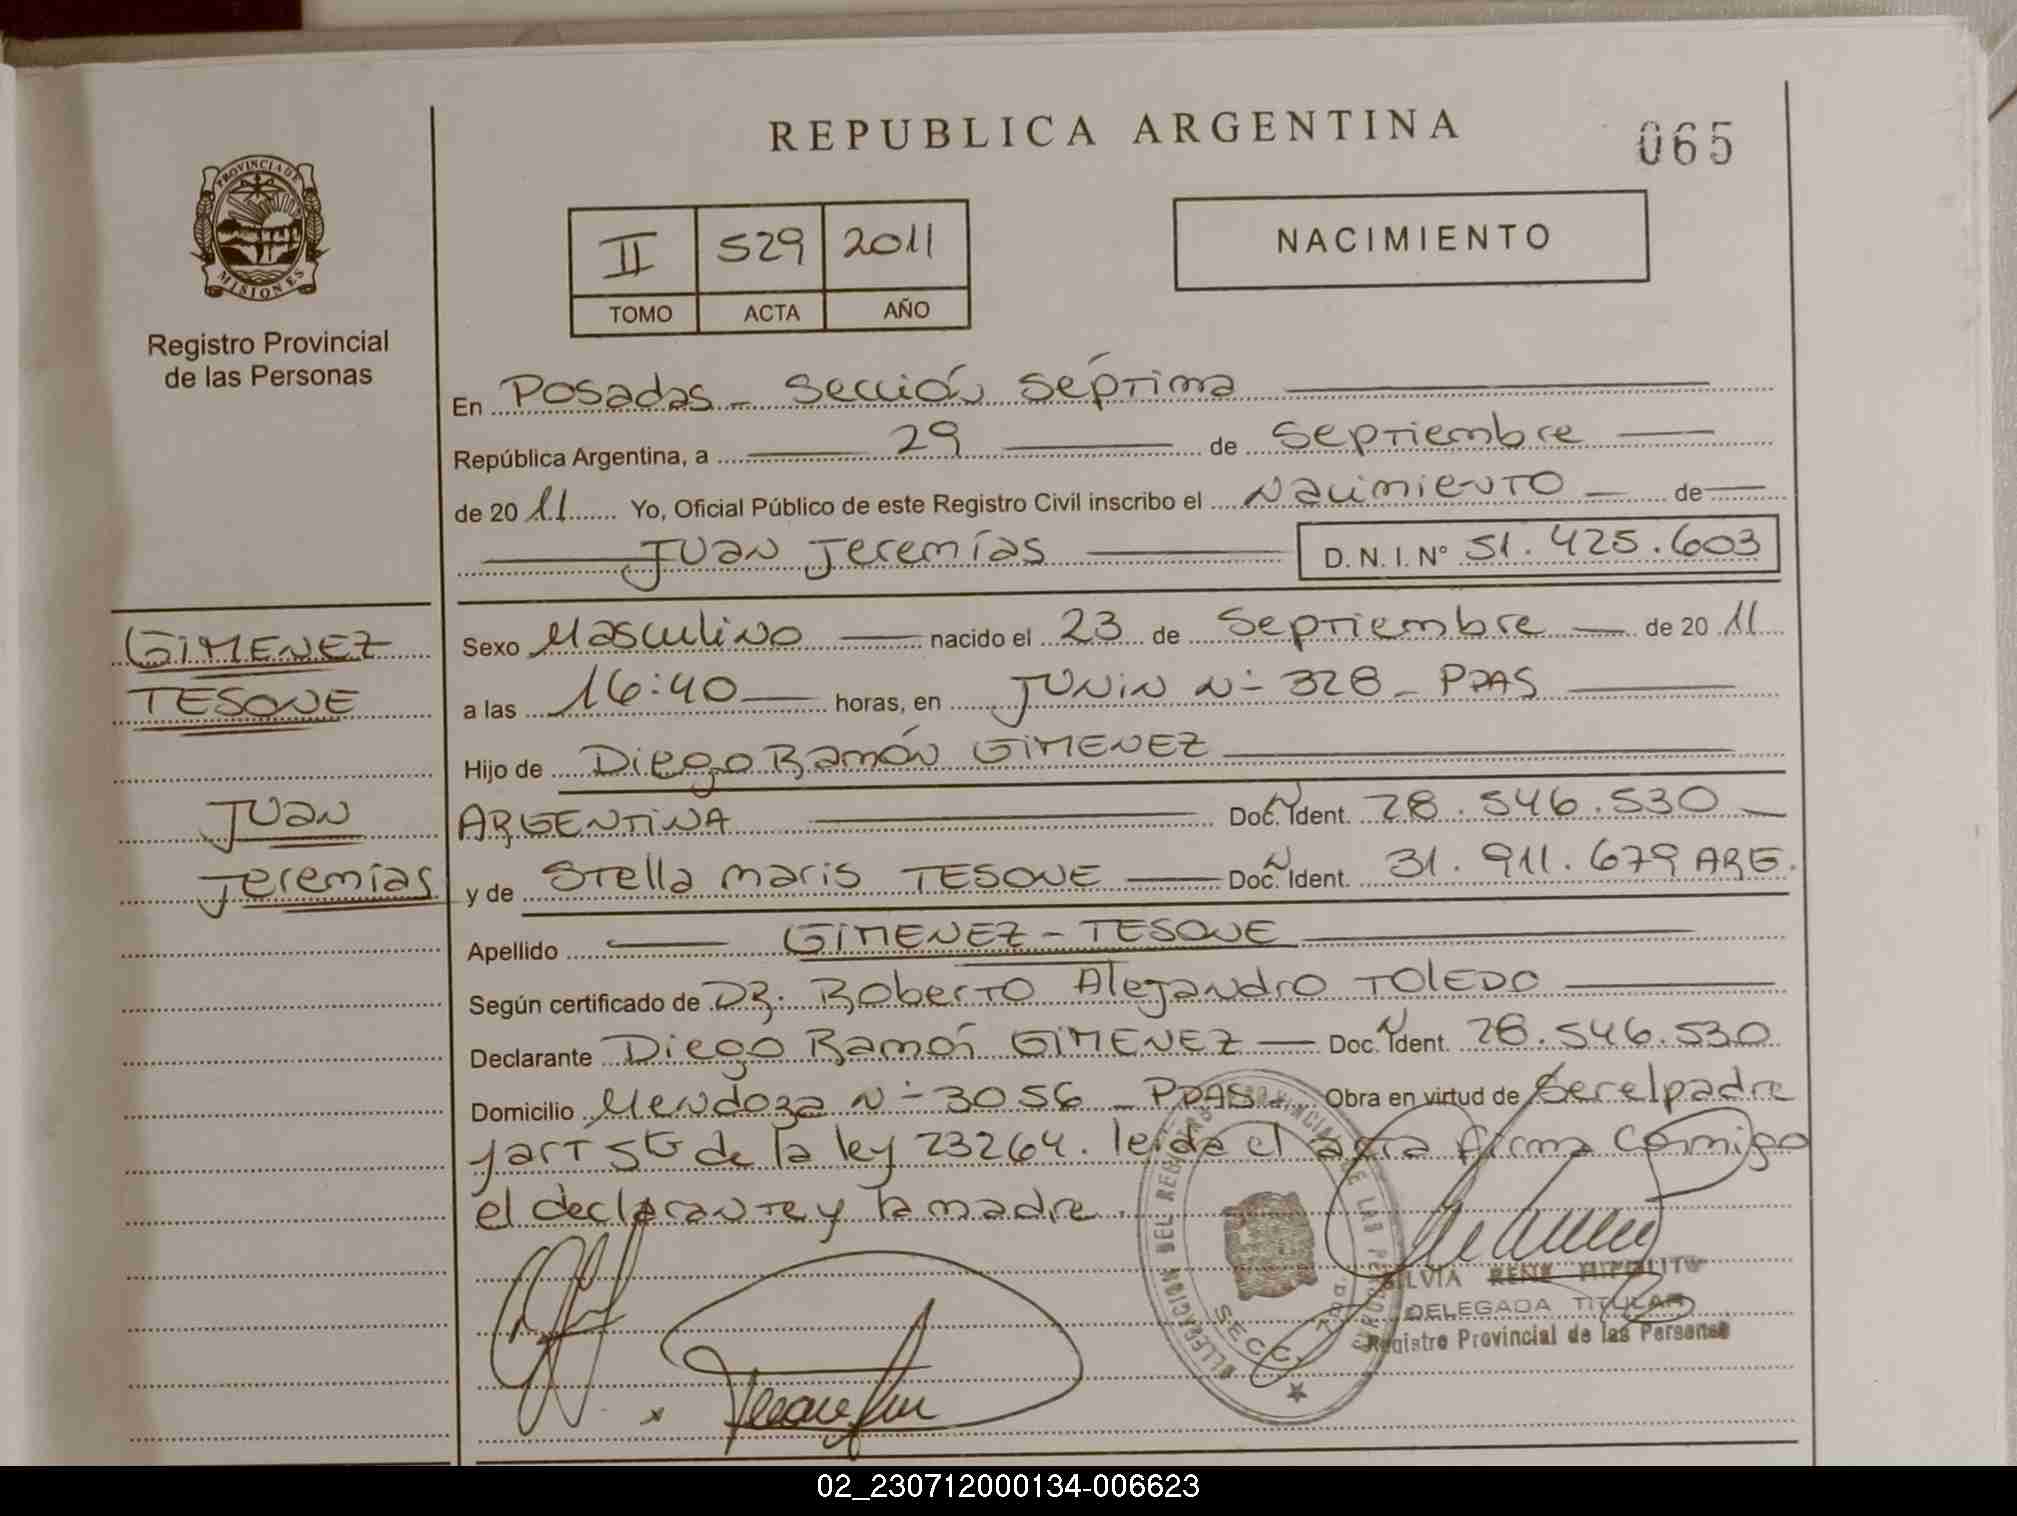 REPUBLICA ARGENTINA
065
PROVINCIA DE
MISIONES
Registro Provincial
de las Personas
II 529 2011
TOMO ACTA AÑO
NACIMIENTO
En Posadas - Sección Séptima
República Argentina, a 29 de Septiembre
de 2011 Yo, Oficial Público de este Registro Civil inscribo el Nacimiento de
Juan Jeremías D. N. I. N° 51.425.603
GIMENEZ
TESQUE
Juan
Jeremías
Sexo Masculino nacido el 23 de Septiembre de 2011
a las 16:40 horas, en Junin N° 328 - PDAS
Hijo de Diego Ramón GIMENEZ
ARGENTINA Doc. Ident. 28.546.530
y de Stella Maris TESQUE Doc. Ident. 31.911.679 ARG.
Apellido GIMENEZ - TESQUE
Según certificado de DR. Roberto Alejandro TOLEDO
Declarante Diego Ramón GIMENEZ Doc. Ident. 28.546.530
Domicilio Mendoza N° 3056 - PDAS Obra en virtud de ser el padre
y art 5to de la ley 23264. leida el acta firma conmigo
el declarante y la madre.
DELEGACION DEL REGISTRO PROVINCIAL DE LAS PERSONAS
SECC. 7
SILVIA RENE HIPOLITO
DELEGADA TITULAR
Registro Provincial de las Personas
02_230712000134-006623